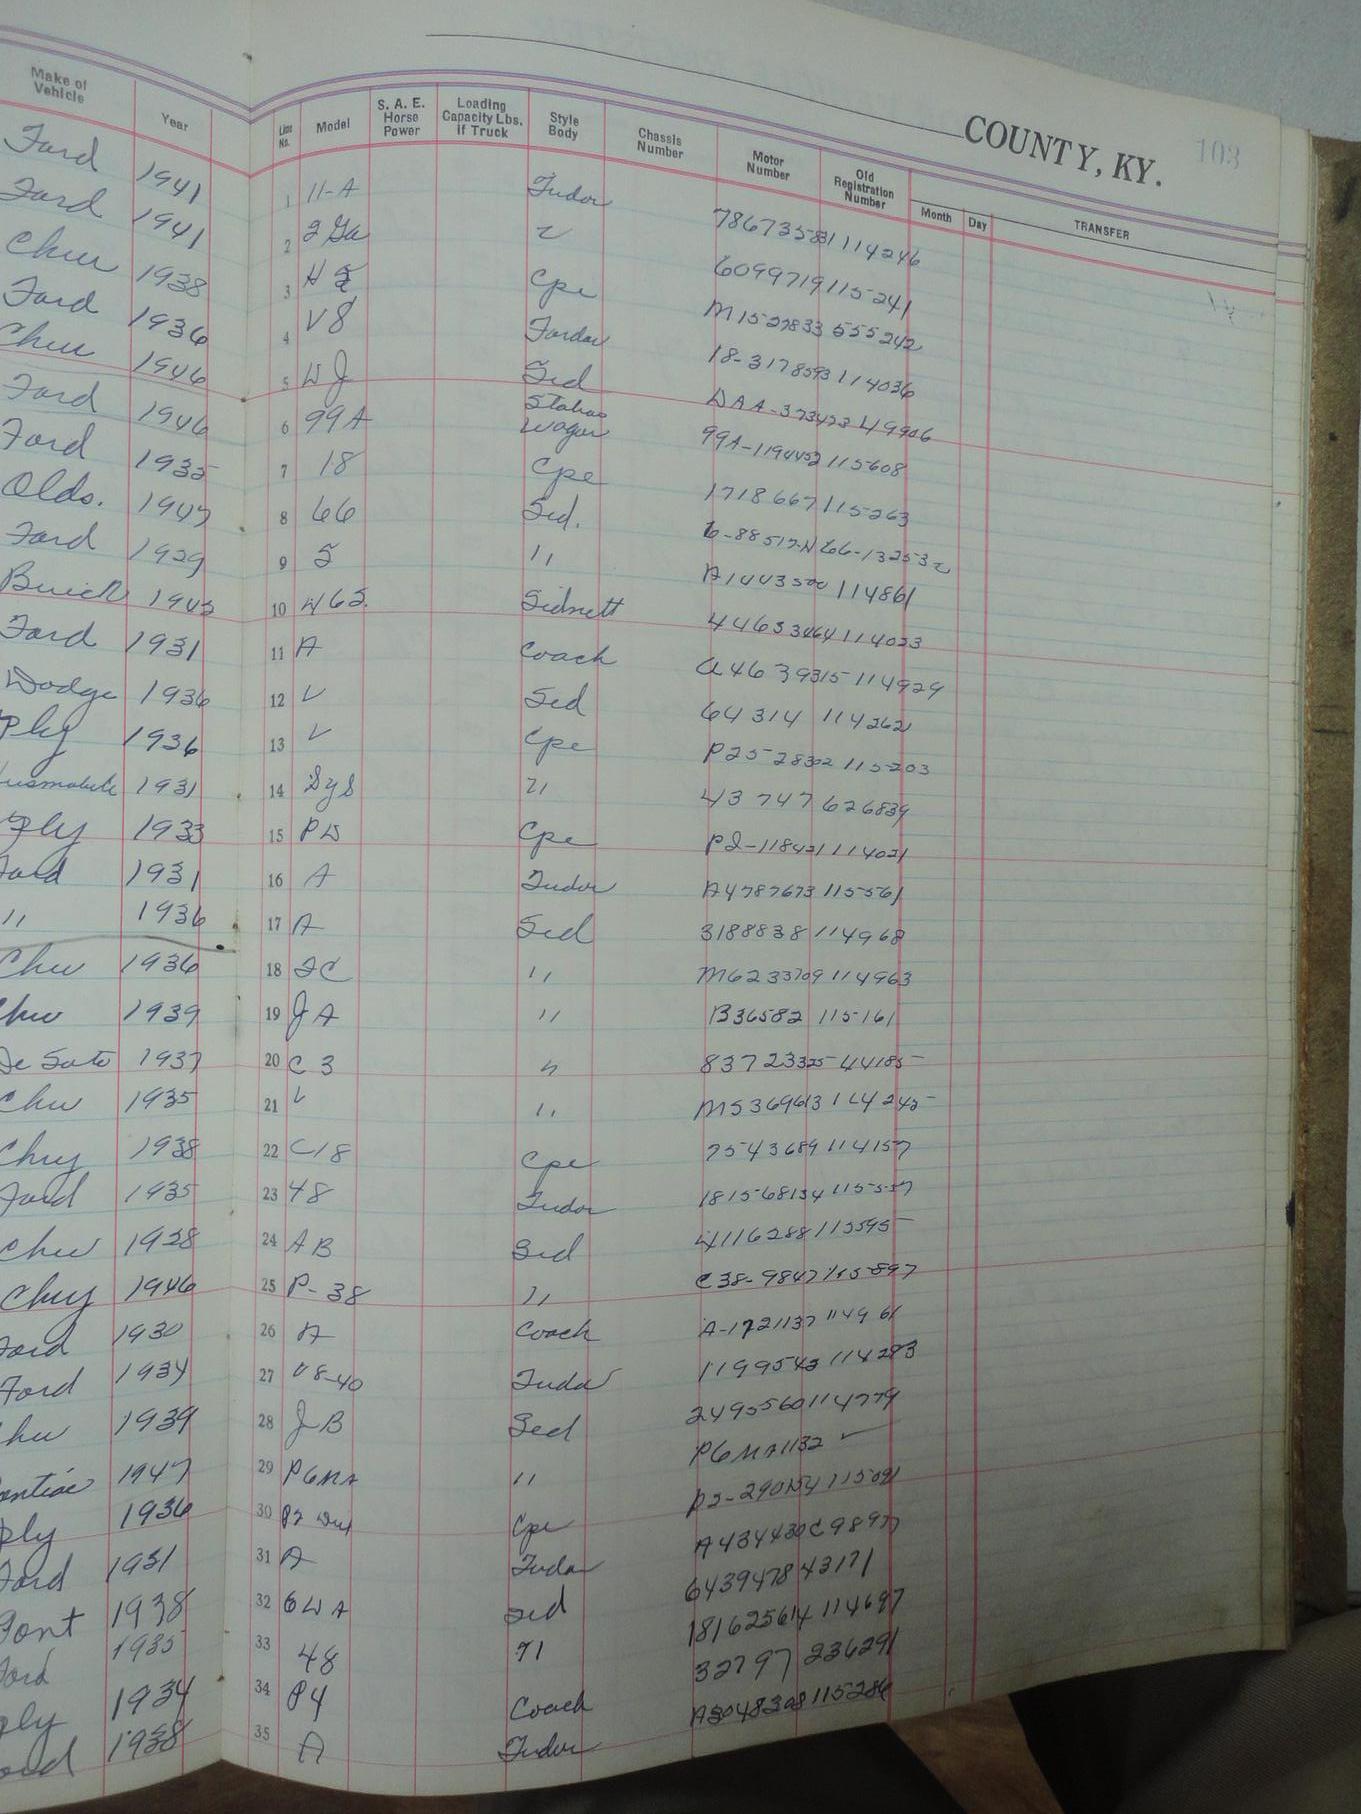 COUNTY, KY. 103
Make of Vehicle Year Line No. Model S. A. E. Horse Power Loading Capacity Lbs. if Truck Style Body Chassis Number Motor Number Old Registration Number Month Day TRANSFER
Ford 1941 1 11-A Tudor 114246
Ford 1941 2 2 Ga 6099719 115-241
Chev 1938 3 Cpe M1527833 555242
Ford 1936 4 V8 Fordor 18-3178593 114036
Chev 1946 5 DJ Sed DAA-373473 L49906
Ford 1946 6 99A Station Wagon 99A-1194452 115608
Ford 1935 7 18 Cpe 1718667 115-263
Olds. 1947 8 66 Sed.
Ford 1929 9 5 " A1443500 114861
Buick 1942 10 Sednett 44633464 114023
Ford 1931 11 A Coach A4639315 114929
Dodge 1936 12 V Sed 64314 114262
Ply 1936 13 V Cpe P25-28302 115-203
1931 14 43747 626839
Ply 1933 15 PD Cpe PD-118421 114021
Ford 1931 16 A Tudor A4787673 115-561
" 1936 17 A Sed 3188838 114968
Chev 1936 18 FC " M6233709 114963
Chev 1939 19 JA " B36582 115-161
De Soto 1937 20 C 3 " 44185
Chev 1935 21 V " M5369613 114242
Chry 1938 22 C18 Cpe 7543689 114157
Ford 1935 23 48 Tudor 1815-68134 115-557
Chev 1928 24 AB Sed 4116288 113595
Chry 1946 25 P-38 " C38-9847 115-897
Ford 1930 26 A Coach A-1721137 114961
Ford 1934 27 V8-40 Tudor 1199543 114283
Chev 1939 28 JB Sed 2495560 114779
Pontiac 1947 29 P6MA " P6MA1132 ✓
Ply 1936 30 Cpe P2-290154 115091
Ford 1931 31 A Tudor A434430 C9897
Pont 1938 32 6DA Sed 6439478 43171
Ford 1935 33 48 " 181625614 114697
Ply 1934 34 P4 Coach 32797 236291
Ford 1938 35 A Tudor A3048308 115286